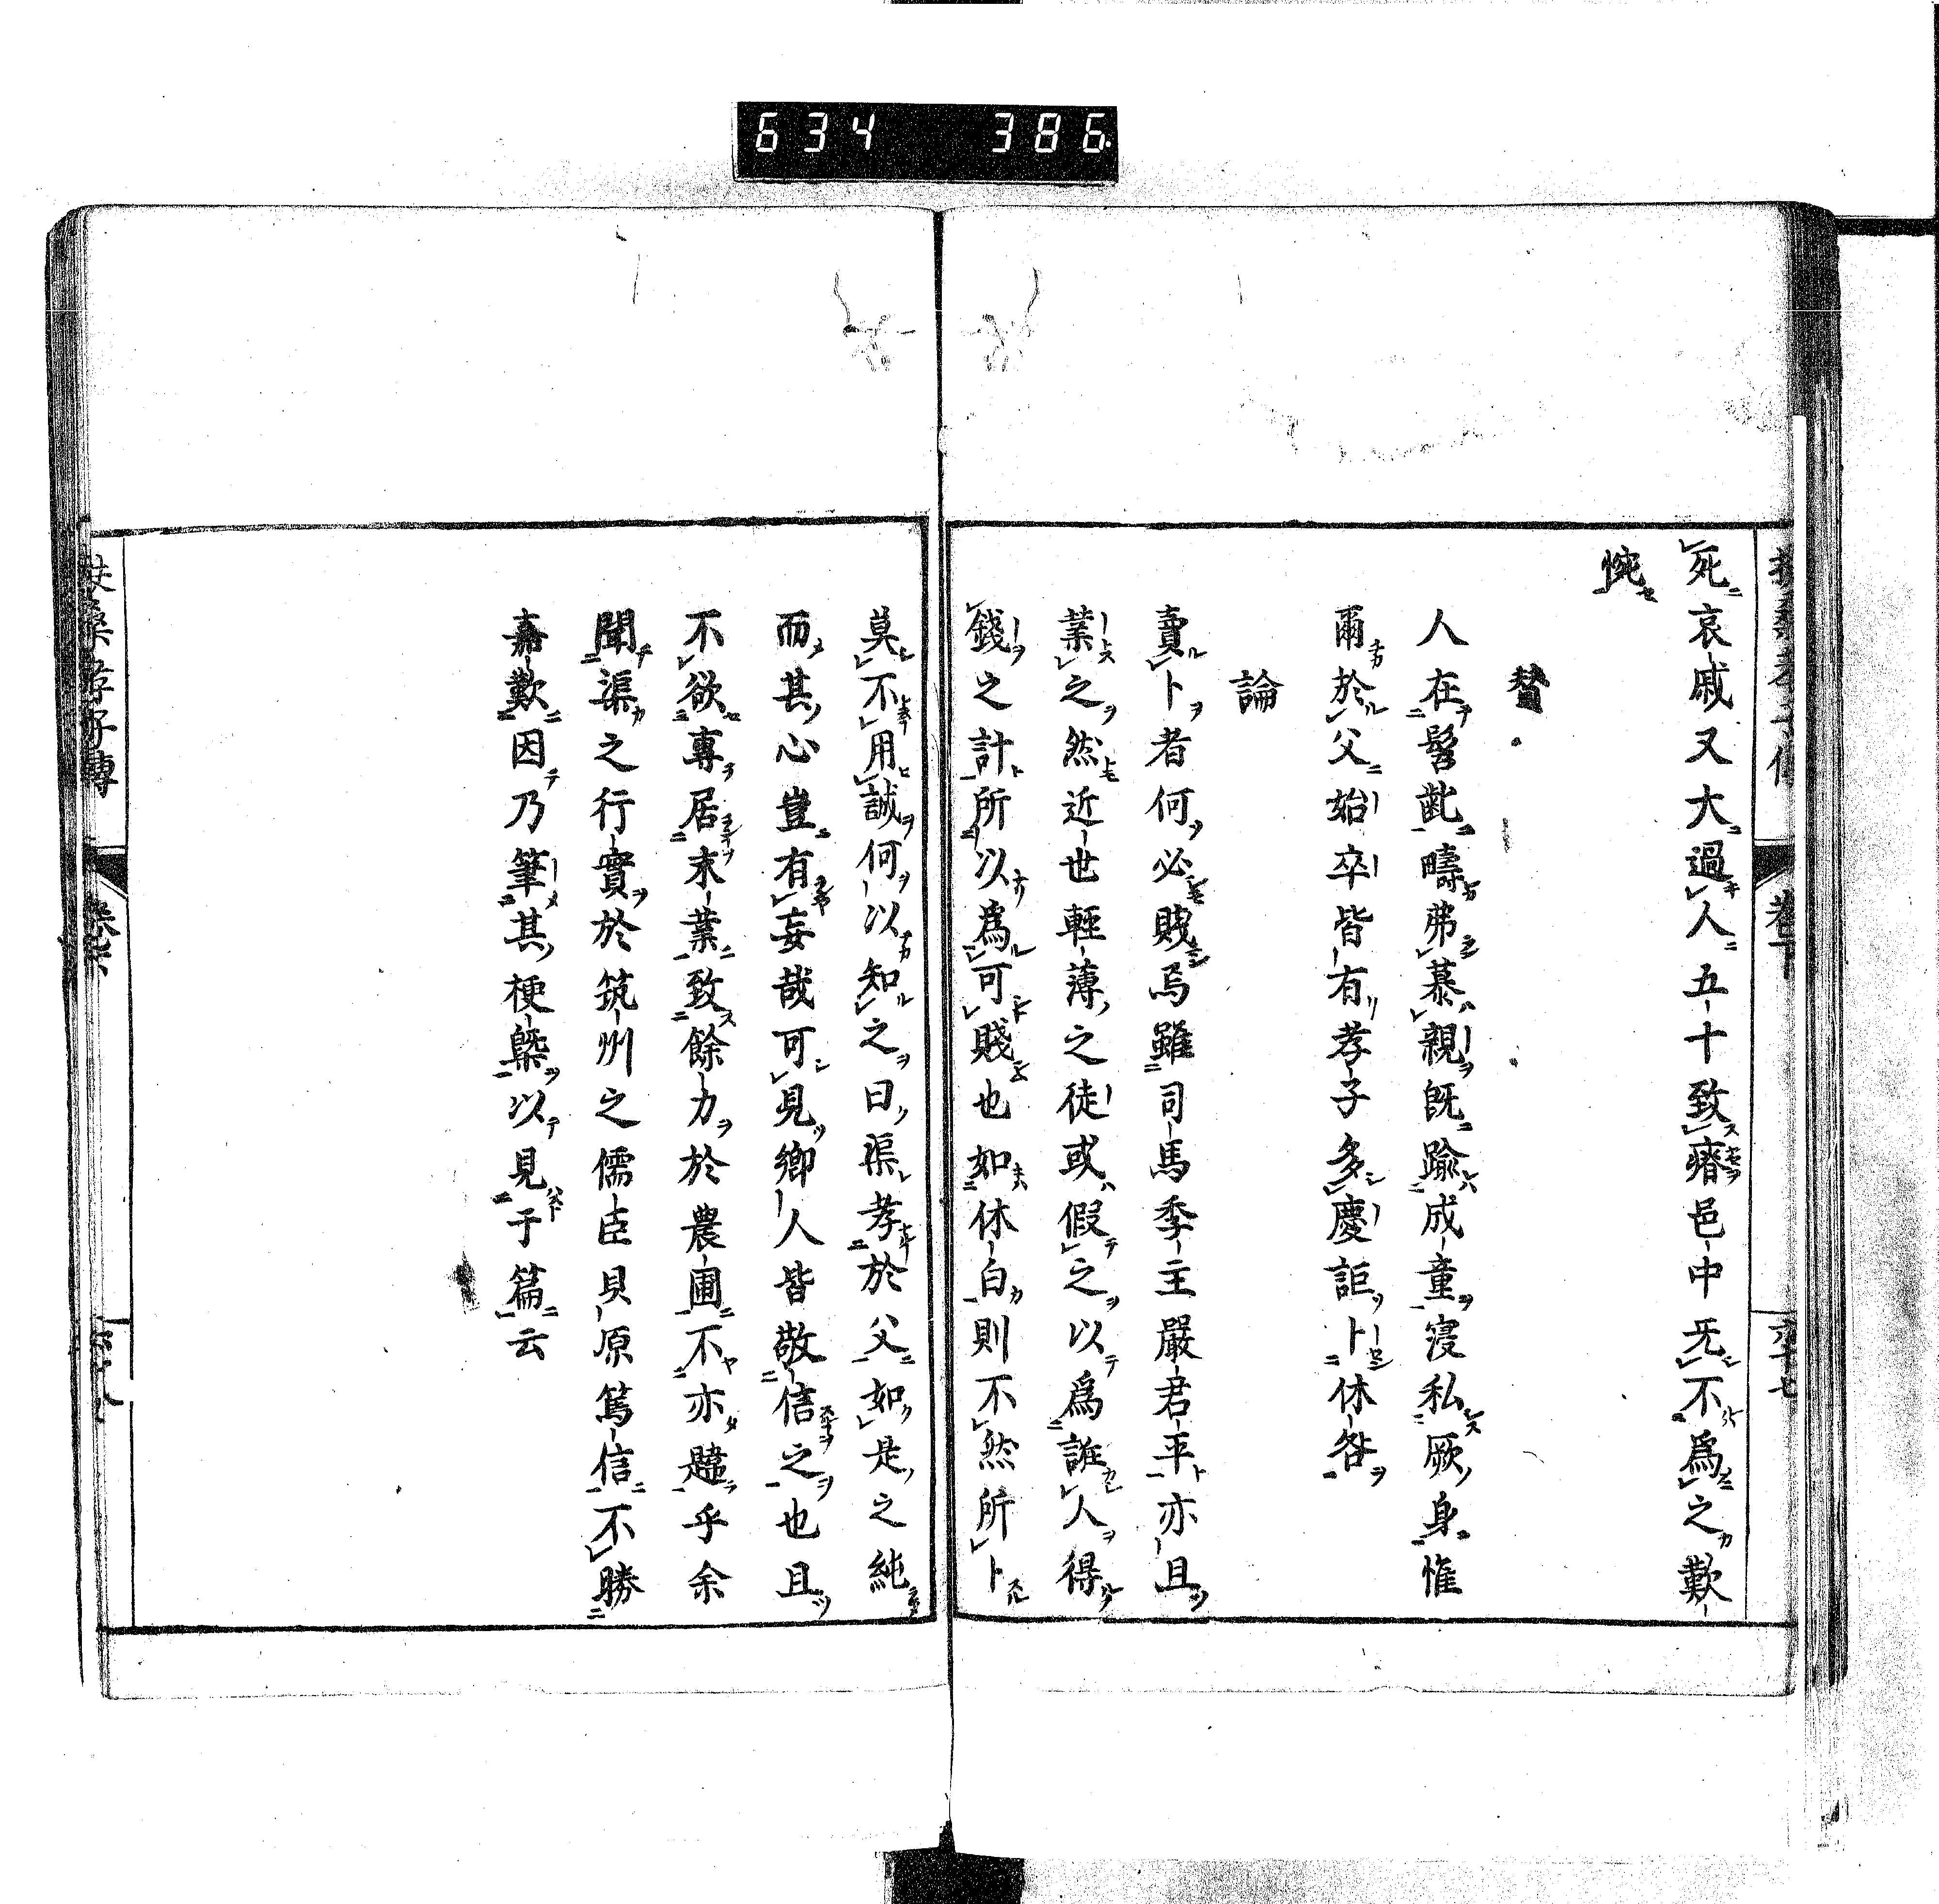 634 386
死哀戚又大過人五十致瘠邑中旡不爲之歎
惋
賛
人在髫齔疇弗慕親既踰成童寖私厥身惟
爾於父始卒皆有孝子多慶詎卜休咎
論
賣卜者何必賤焉雖司馬季主嚴君平亦且
業之然近世輕薄之徒或假之以爲誑人得
錢之計所以爲可賤也如休白則不然所卜
莫不用誠何以知之曰渠孝於父如是之純
而其心豈有妄哉可見鄉人皆敬信之也且
不欲專居末業致餘力於農圃不亦韙乎余
聞渠之行實於筑州之儒臣貝原篤信不勝
嘉歎因乃筆其梗槩以見于篇云
扶桑孝子傳